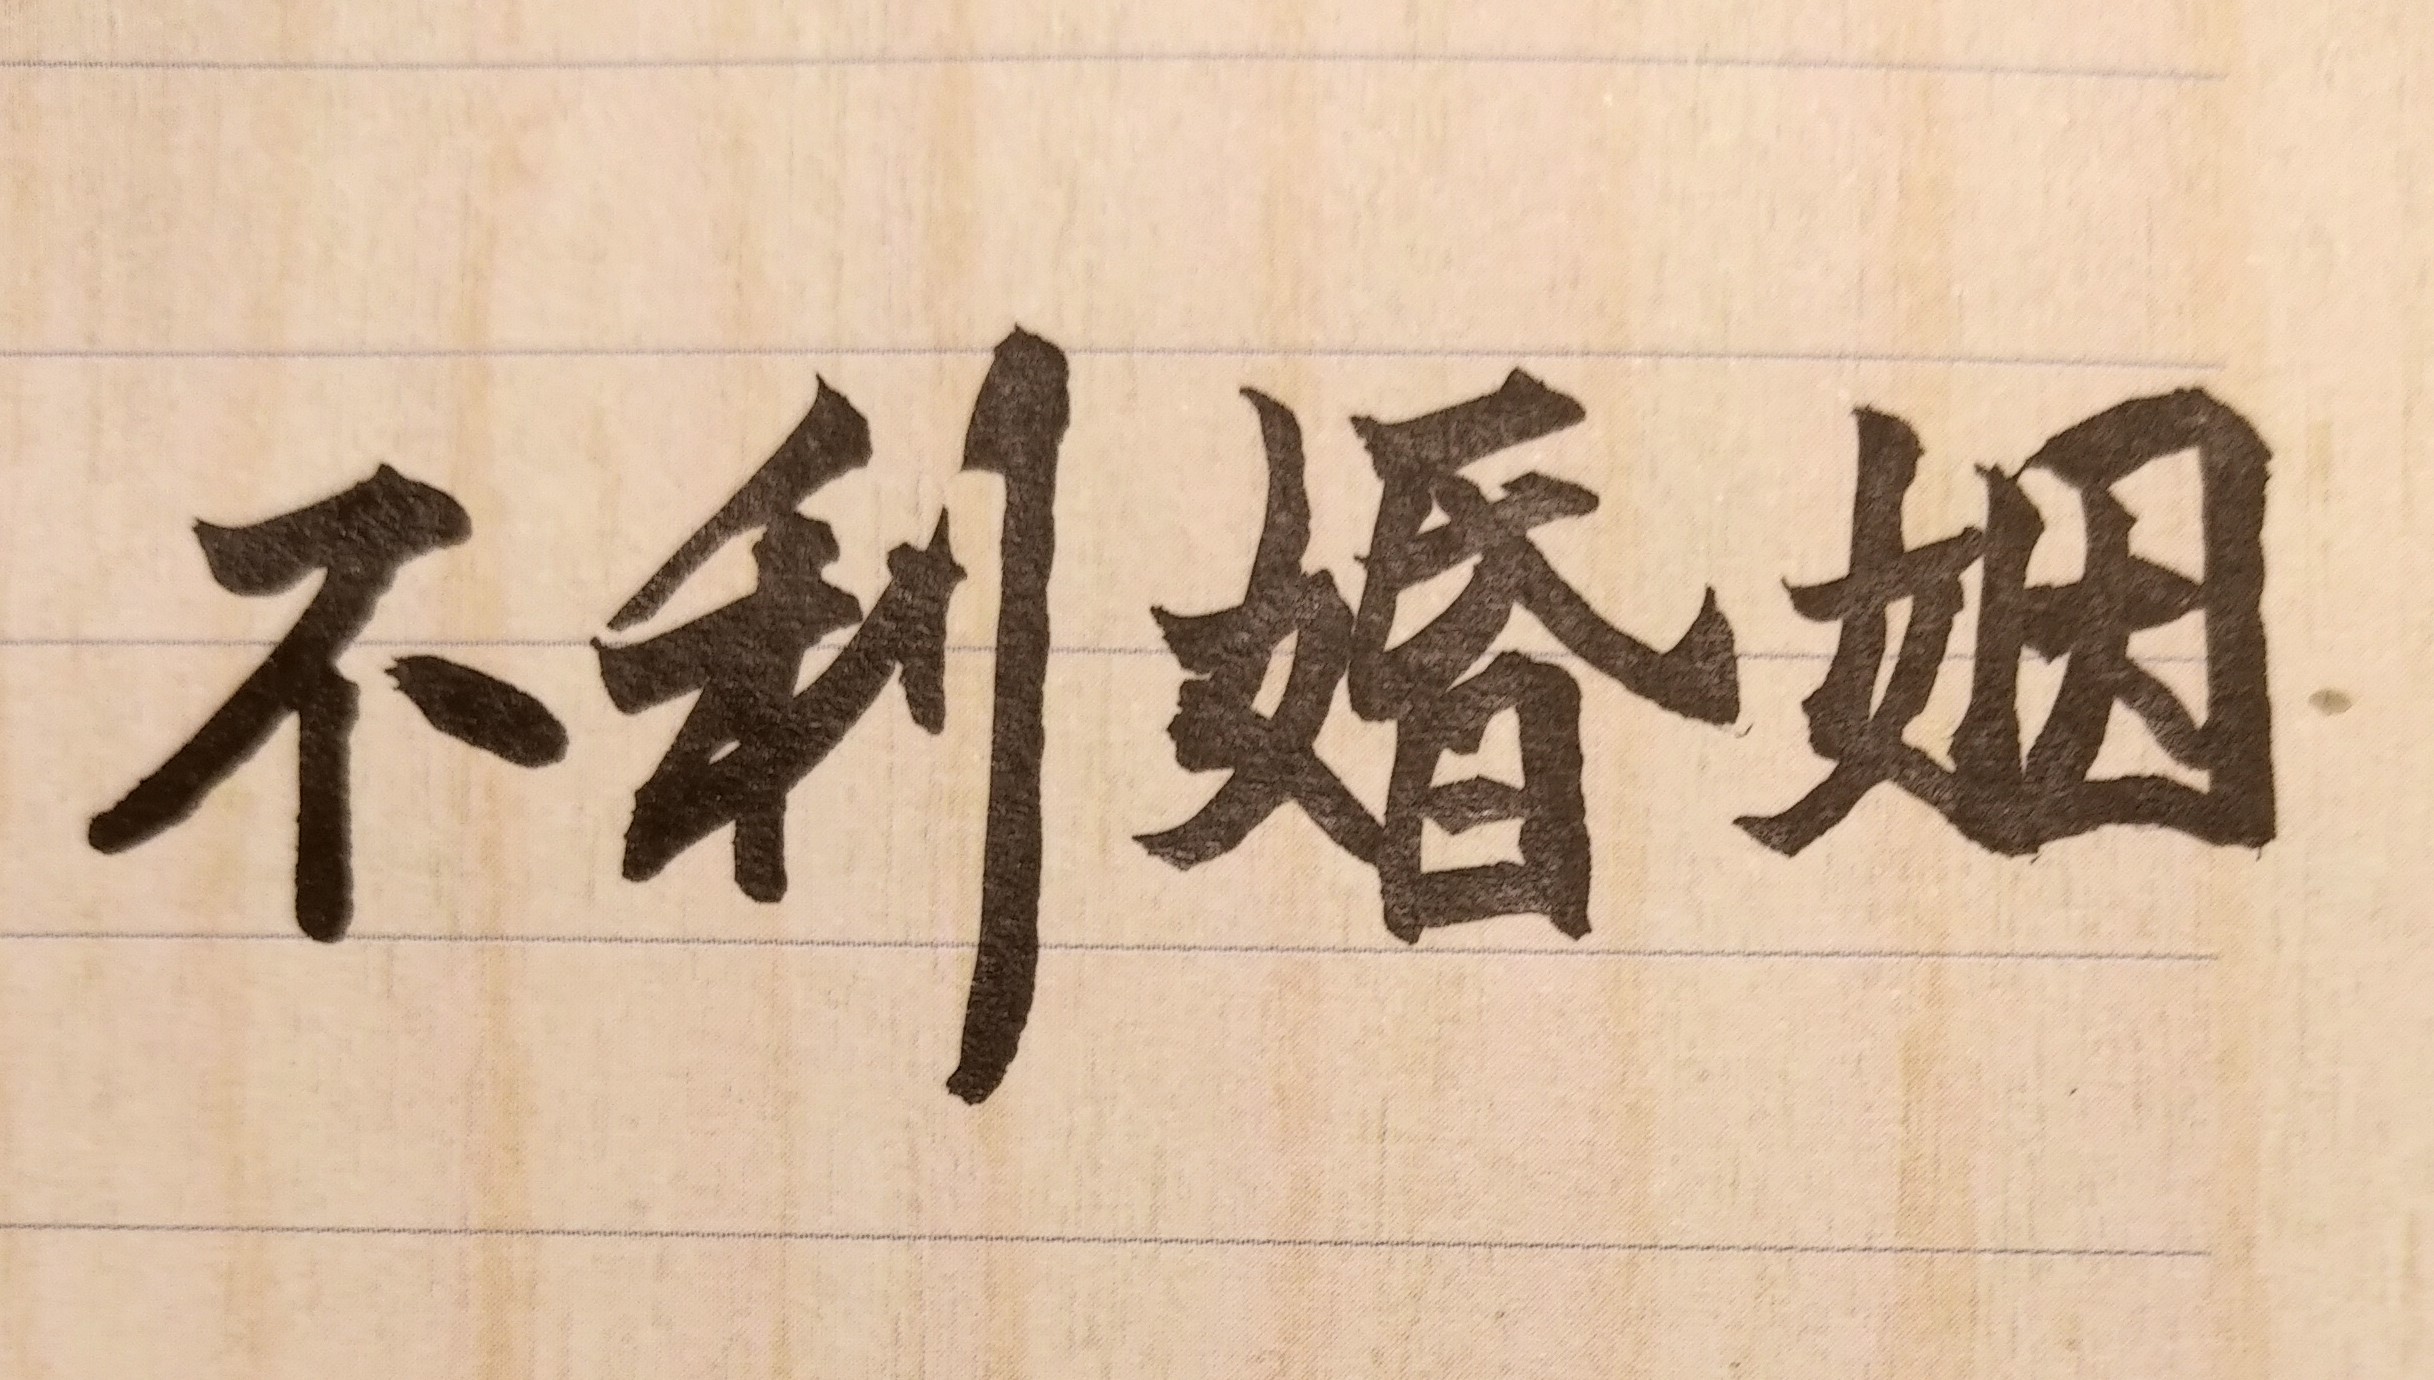 不利婚姻